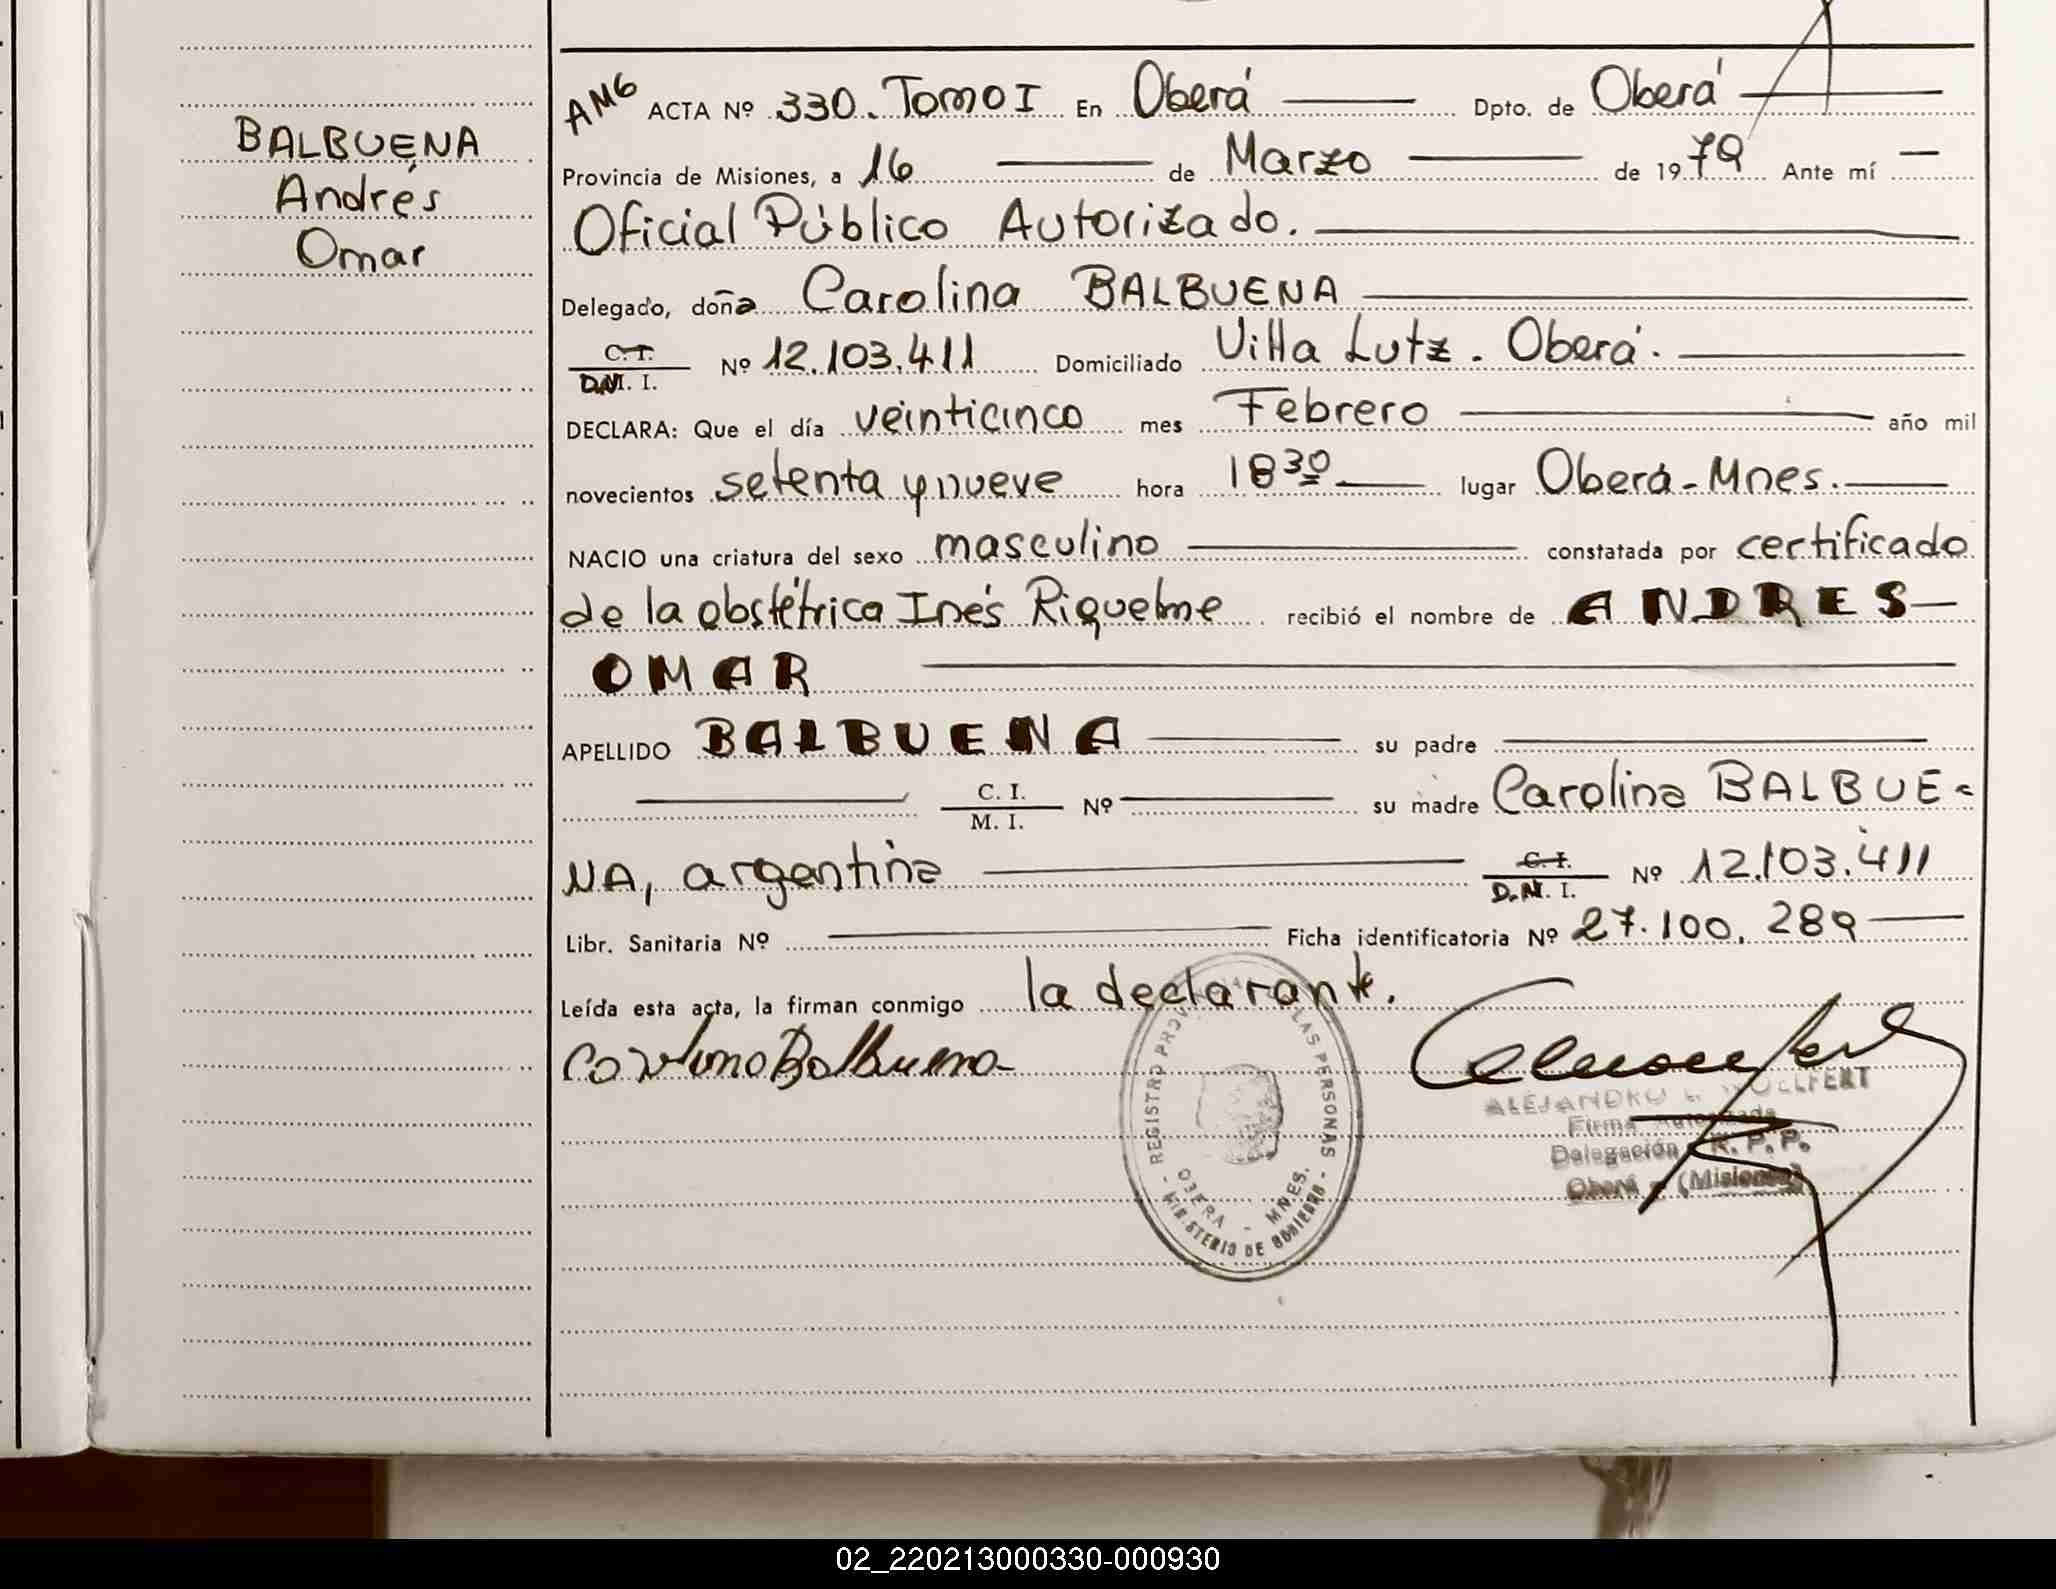 BALBUENA
Andrés
Omar
AMG ACTA Nº 330. Tomo I En Oberá Dpto. de Oberá
Provincia de Misiones, a 16 de Marzo de 1979 Ante mí
Oficial Público Autorizado.
Delegado, doña Carolina BALBUENA
C. I. D.N.I. Nº 12.103.411 Domiciliado Villa Lutz. Oberá.
DECLARA: Que el día veinticinco mes Febrero año mil
novecientos setenta y nueve hora 18 30 lugar Oberá-Mnes.
NACIO una criatura del sexo masculino constatada por certificado
de la obstétrica Inés Riquelme recibió el nombre de ANDRES
OMAR
APELLIDO BALBUENA su padre
C. I. M. I. Nº su madre Carolina BALBUE-
NA, argentina C. I. D.N.I. Nº 12.103.411
Libr. Sanitaria Nº Ficha identificatoria Nº 27.100.289
Leída esta acta, la firman conmigo la declarante.
Carolina Balbuena
- REGISTRO PROV LAS PERSONAS -
OBERA - MNES.
MINISTERIO DE GOBIERNO
ALEJANDRO WOLLFERT
Firma Autorizada
Delegación R. P. P.
Oberá - (Misiones)
02_220213000330-000930